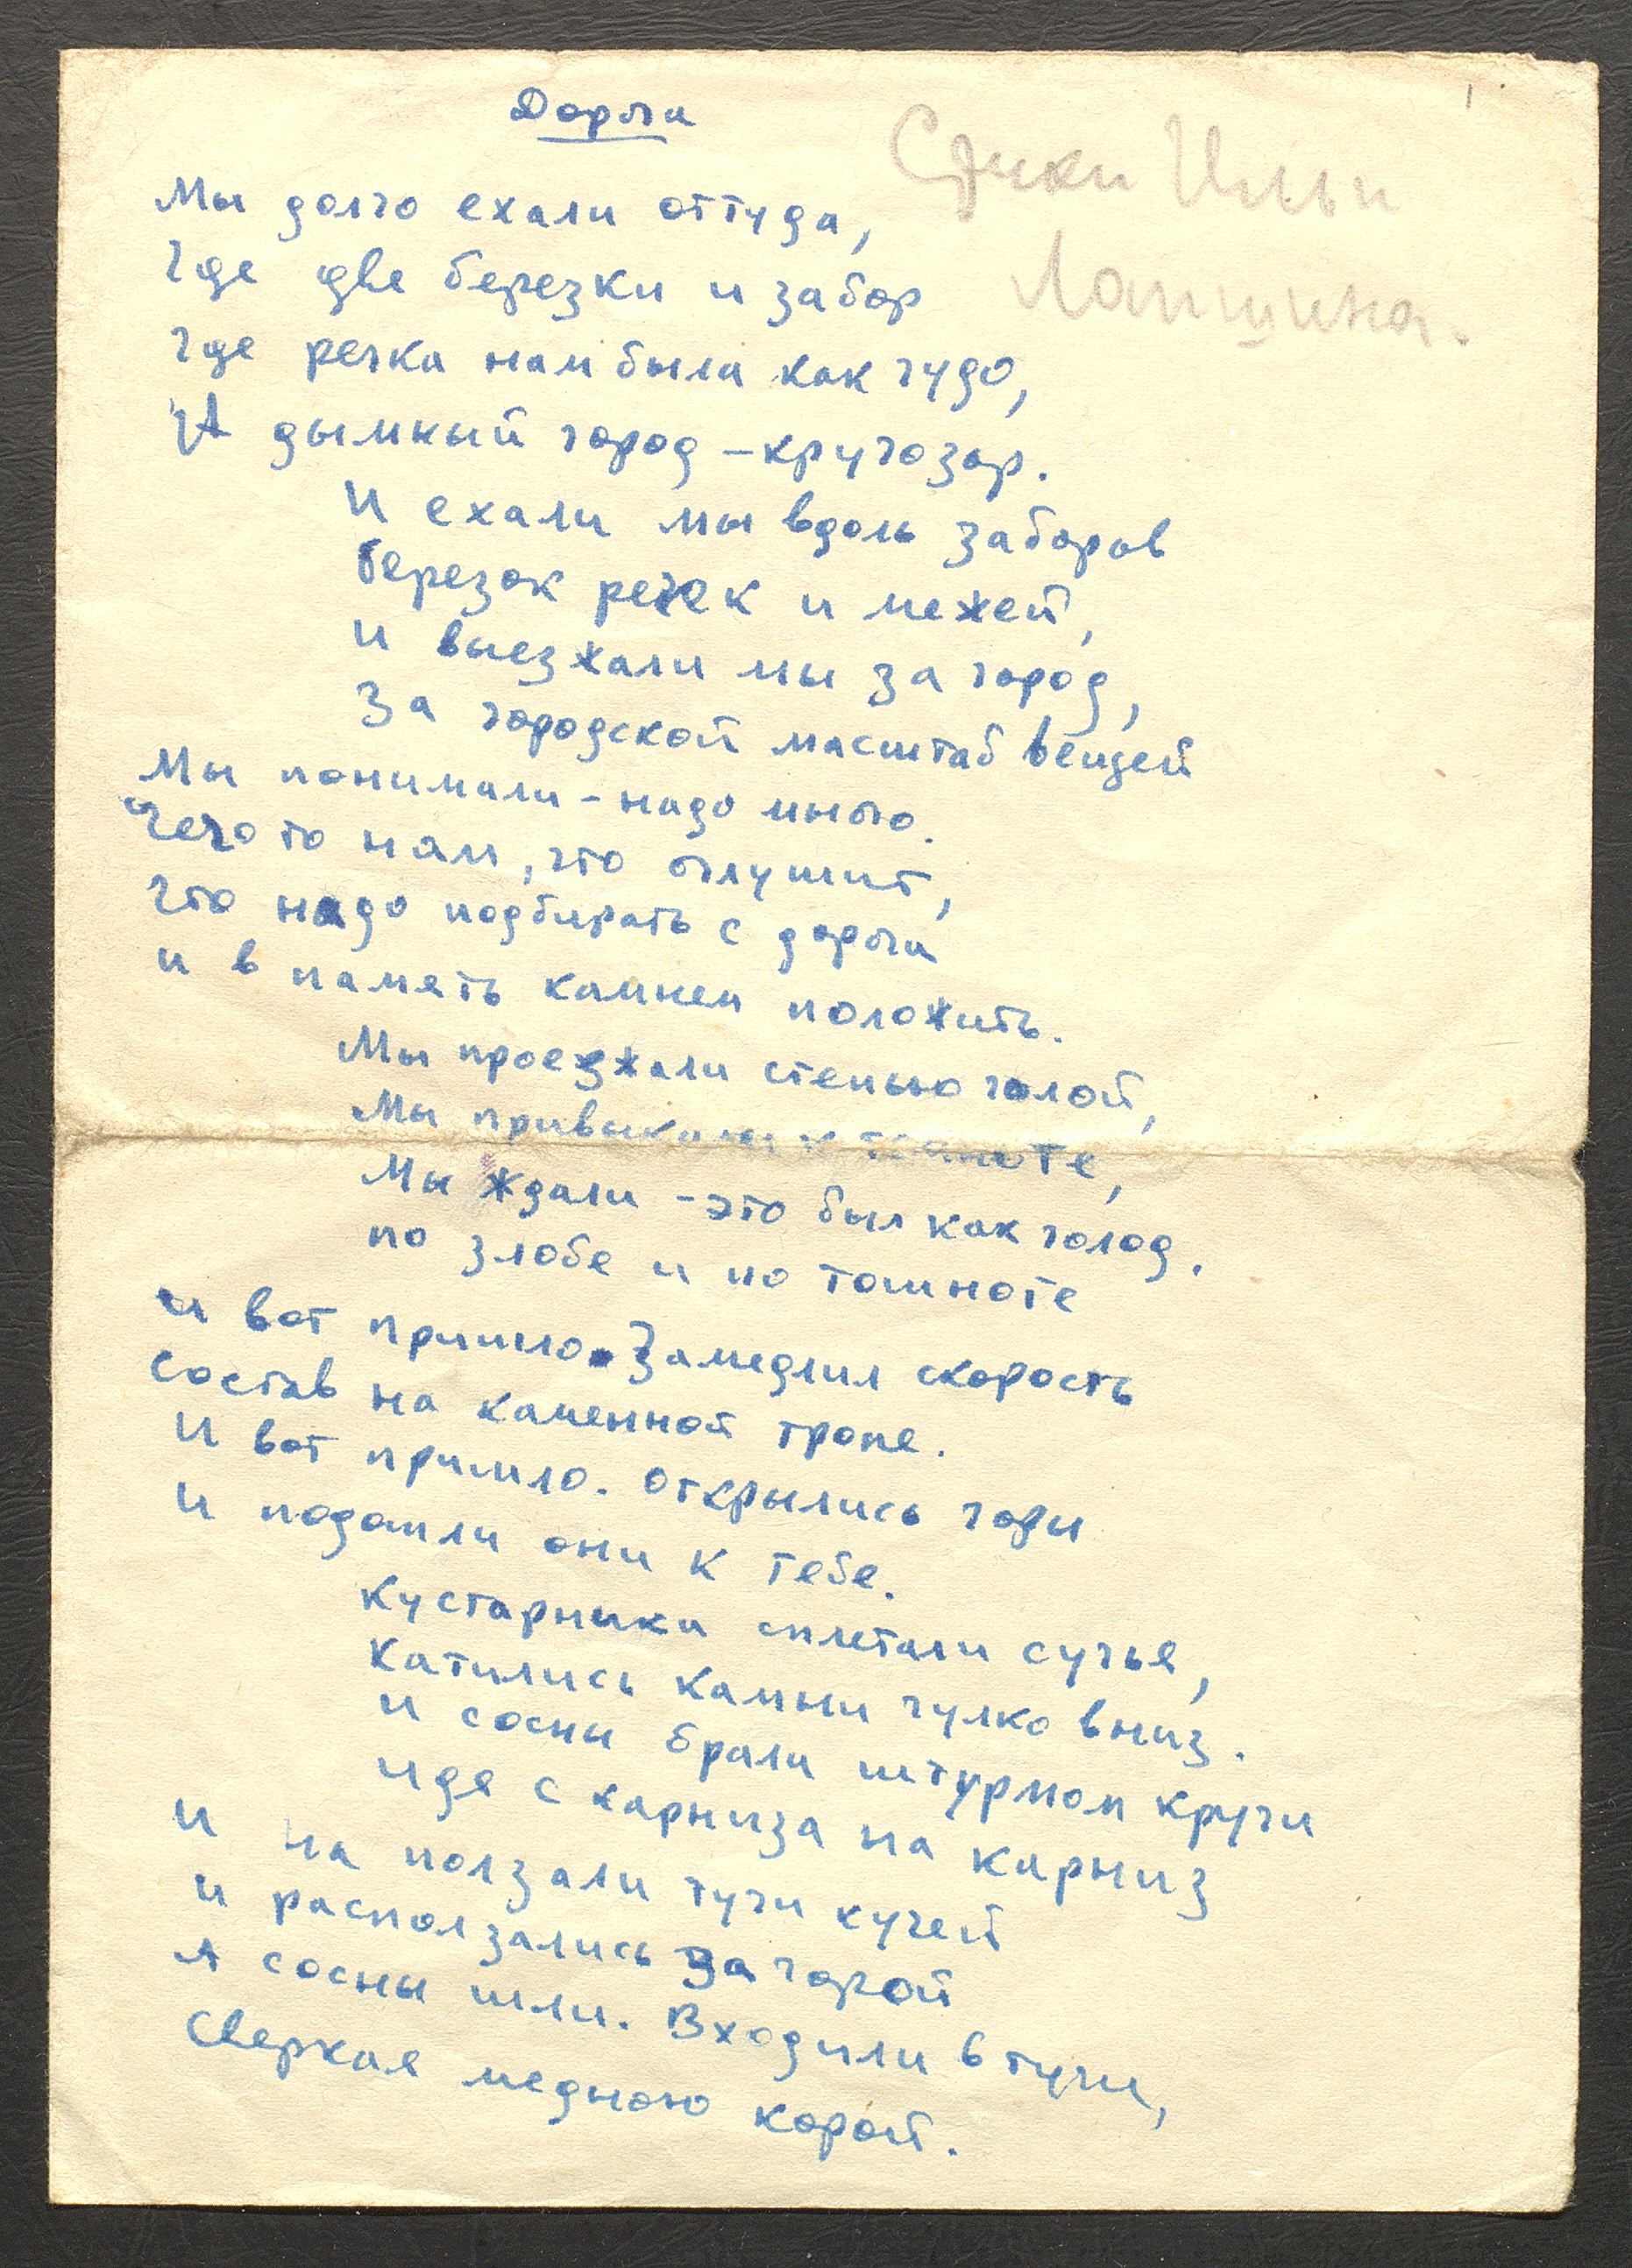 Дорога
1
Стихи Ильи
Лапшина.
Мы долго ехали оттуда,
Где две березки и забор
Где речка нам была как чудо,
А дымный город – кругозор.
И ехали мы вдоль заборов
Березок речек и межей,
и выезжали мы за город,
За городской масштаб вещей
Мы понимали – надо много.
Чего то нам, что оглушит,
Что надо подбирать с дороги
и в память камнем положить.
Мы проезжали степью голой,
Мы привыкали к темноте,
Мы ждали – это был как голод.
по злобе и по тошноте
и вот пришло. Замедлил скорость
Состав на каменной тропе.
И вот пришло. Открылись горы
И подошли они к тебе.
Кустарники сплетали сучья,
Катились камни гулко вниз.
и сосны брали штурмом кручи
идя с карниза на карниз
и на ползали тучи кучей
и расползались за горой
А сосны шли. Входили в тучи,
Сверкая медною корой.